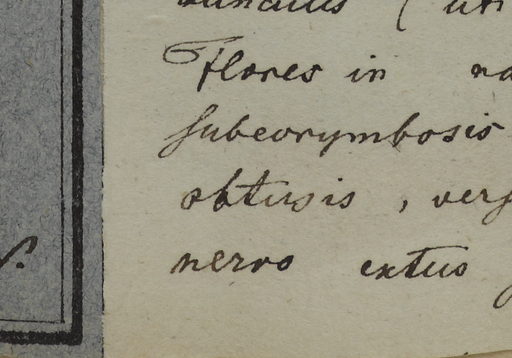 Flores in
subcorymbosis
obtusis ,
nervo extus